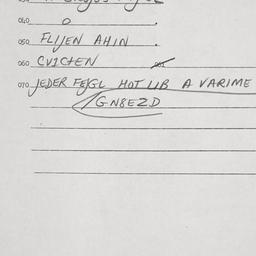 040 O
050 FLIJEN AHIN
060 CVICTEN 061
070 JEDER FEJGL HOT LIB A VARIME
GN8EZD